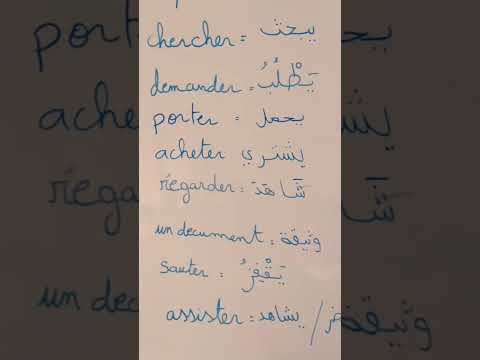 chercher = يبحث
demander = يَطْلُبُ
porter = يحمل
acheter يشتري
regarder = شَاهَدَ
un document = وثيقة
sauter = يَقْفِزُ
assister = يشاهد /